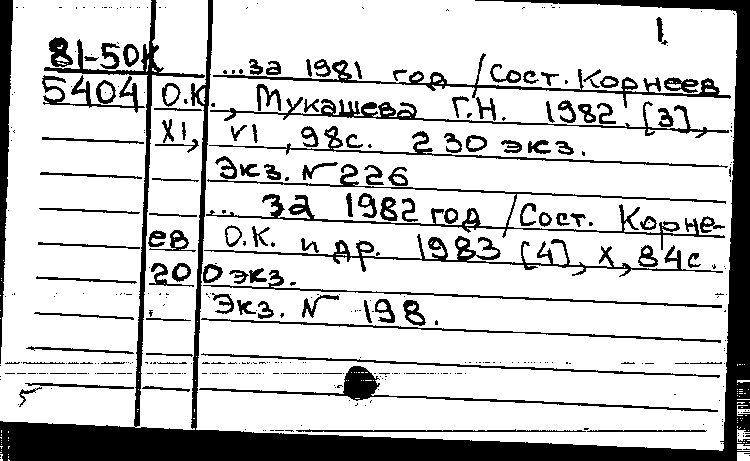 1
81-50К ...за 1981 год /Сост. Корнеев
5404 О.К., Мукашева Г.Н. 1982. [3],
XI, VI, 98с. 230 экз.
Экз. № 226
... за 1982 год /Сост. Корне-
ев О.К. и др. 1983 [4], X, 84с.
200 экз.
Экз. № 198.
5